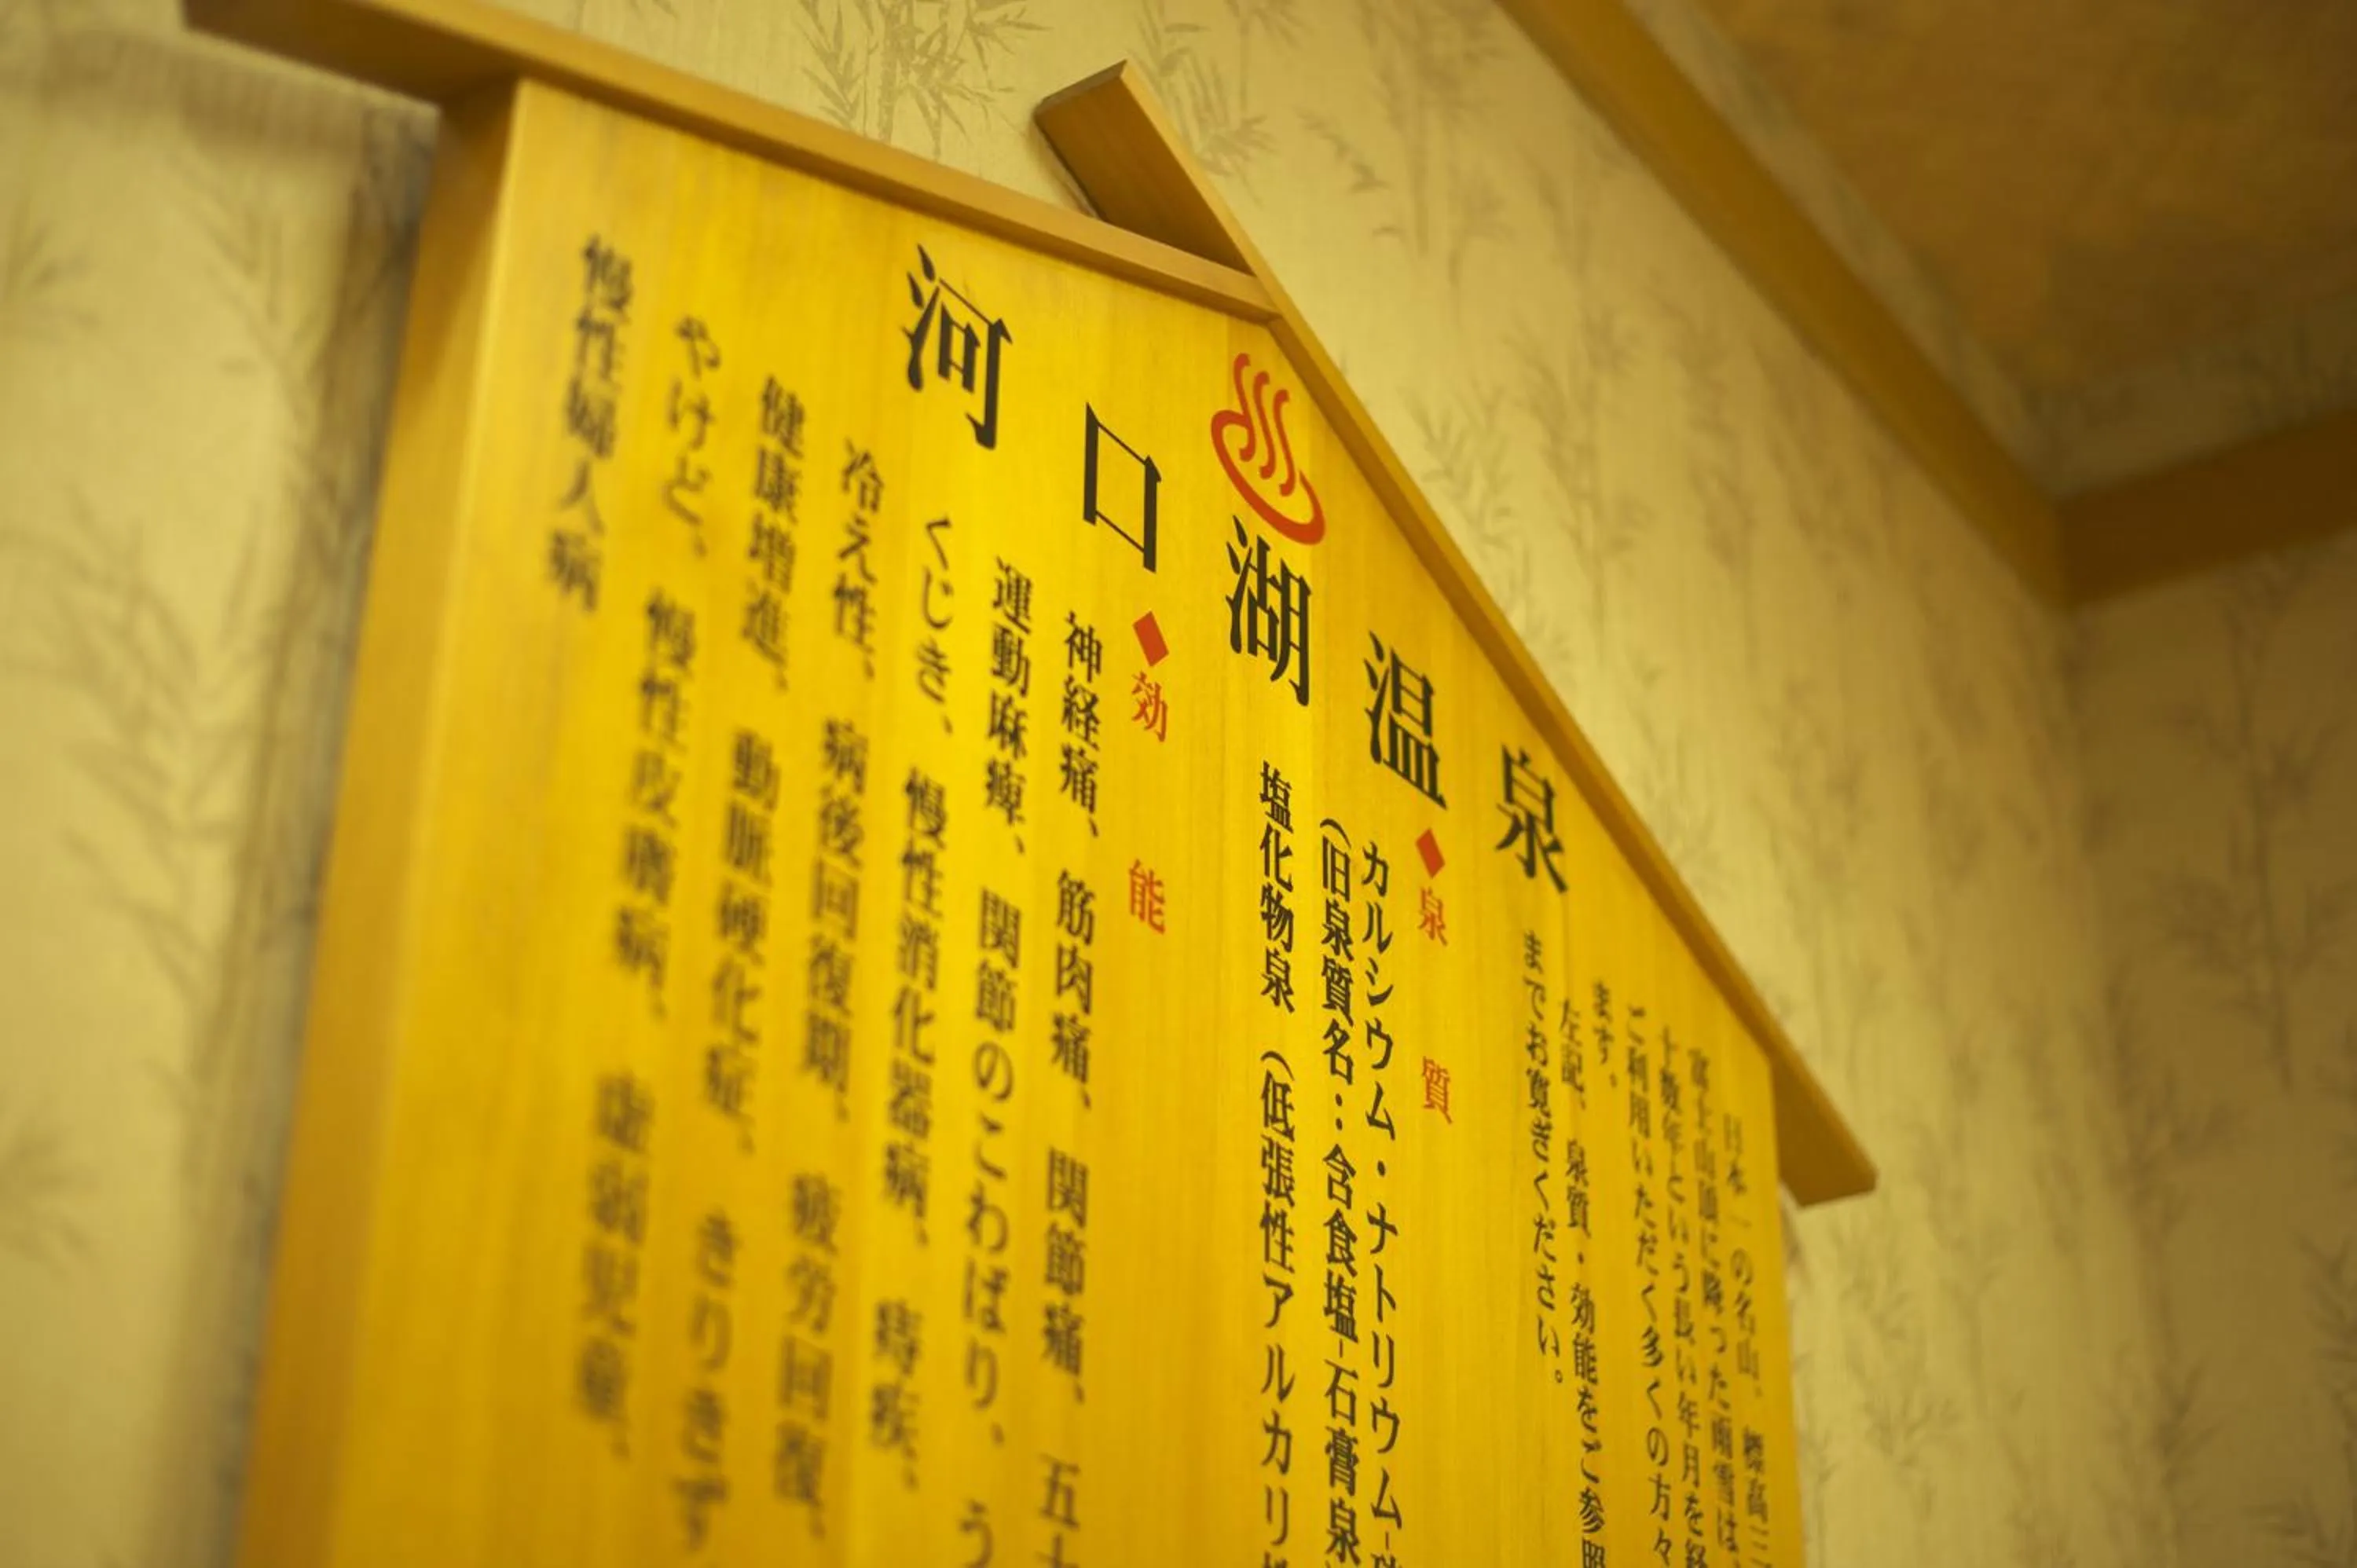 河口湖温泉
日本一の名山、標高三
富士山頂に降った雨雪は、
十数年という長い年月を経
ご利用いただく多くの方々
ます。
左記、泉質・効能をご参照
までお寛ぎください。
◆泉質
カルシウム・ナトリウム-
(旧泉質名::含食塩-石膏泉
塩化物泉 (低張性アルカリ
◆効能
神経痛、筋肉痛、関節痛、五十
運動麻痺、関節のこわばり、う
くじき、慢性消化器病、痔疾、
冷え性、病後回復期、疲労回復、
健康増進、動脈硬化症、きりきず
やけど、慢性皮膚病、虚弱児童、
慢性婦人病